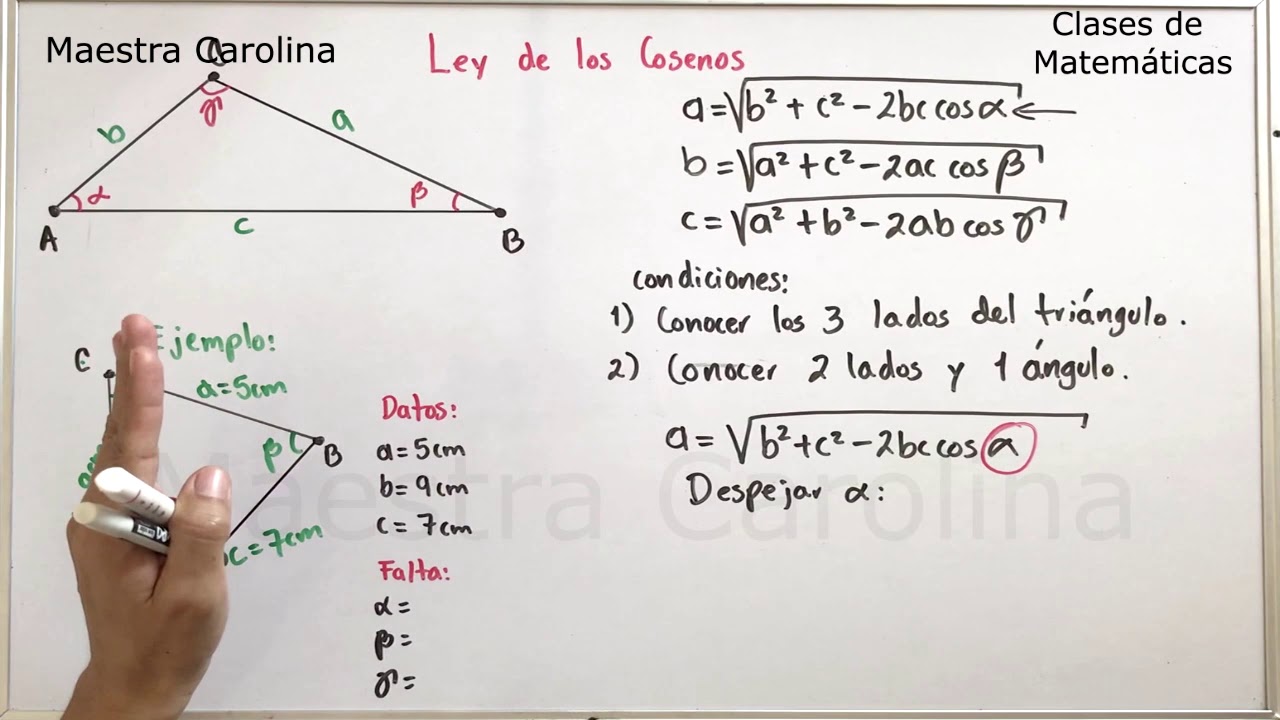 Maestra Carolina
Ley de los Cosenos
Clases de
Matemáticas
γ
b
a
α
β
c
A
B
a=√b²+c²-2bc cosα ←
b=√a²+c²-2ac cos β
c=√a²+b²-2ab cos γ
condiciones:
1) Conocer los 3 lados del triángulo.
2) Conocer 2 lados y 1 ángulo.
a=√b²+c²-2bc cos α
Despejar α:
Ejemplo:
C
a=5cm
β
B
c=7cm
Datos:
a=5cm
b=9cm
c=7cm
Falta:
α=
β=
γ=
Maestra Carolina